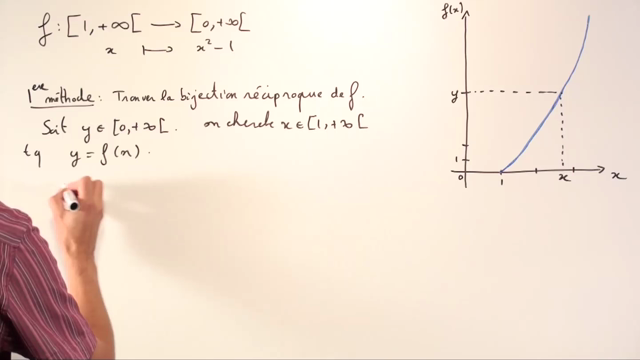 f : [1, +∞[ ⟶ [0, +∞[
x ⟼ x² - 1
1ère méthode : Trouver la bijection réciproque de f.
Soit y ∈ [0, +∞[ . on cherche x ∈ [1, +∞[
tq y = f(x) .
f(x)
y
1
0
1
x
x